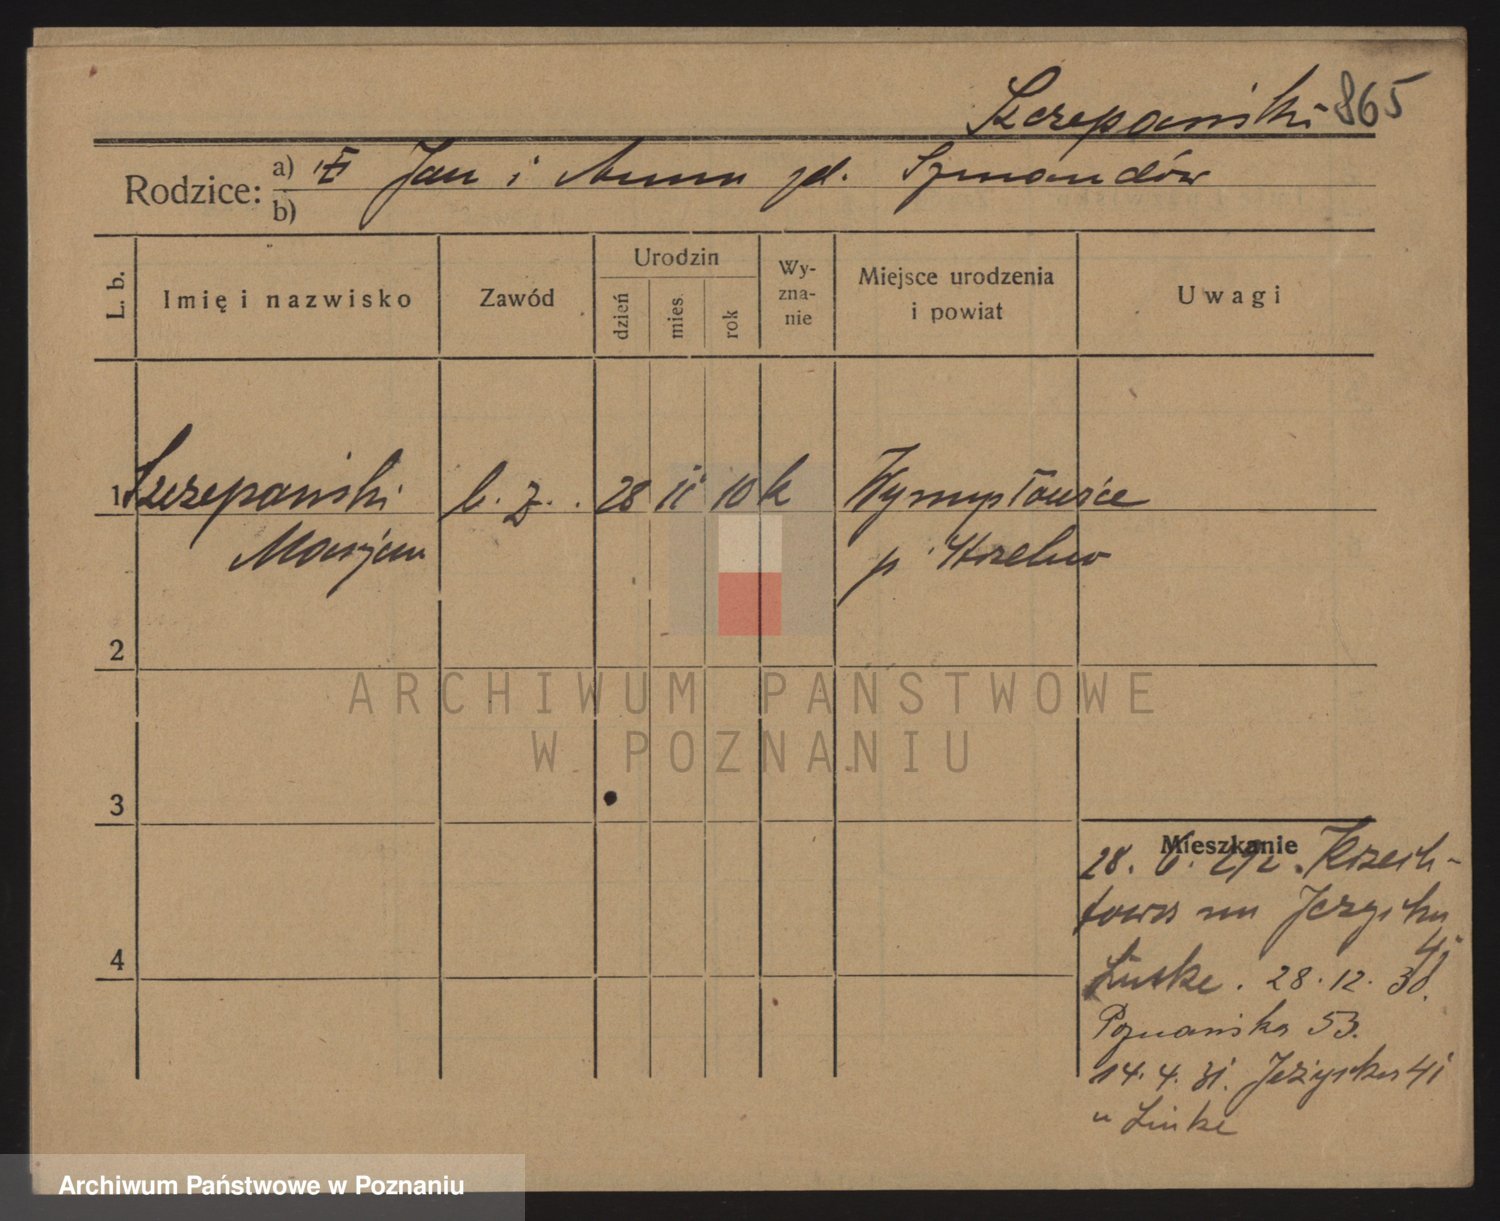 Szczepański 865
Rodzice: a) Jan i Anna zd.
b)
L. b.
Imię i nazwisko
Zawód
Urodzin
dzień
mies.
rok
Wy-
zna-
nie
Miejsce urodzenia
i powiat
Uwagi
1 Szczepański b. z. 28 11 10 k Wymysłowice
Marjan p. Strzelno
2
3
4
Mieszkanie
28. 6.
Jeżycka
41
Linke. 28. 12. 30.
Poznańska 53.
14. 4. 31. Jeżycka 41
u Linke
ARCHIWUM PAŃSTWOWE
W POZNANIU
Archiwum Państwowe w Poznaniu